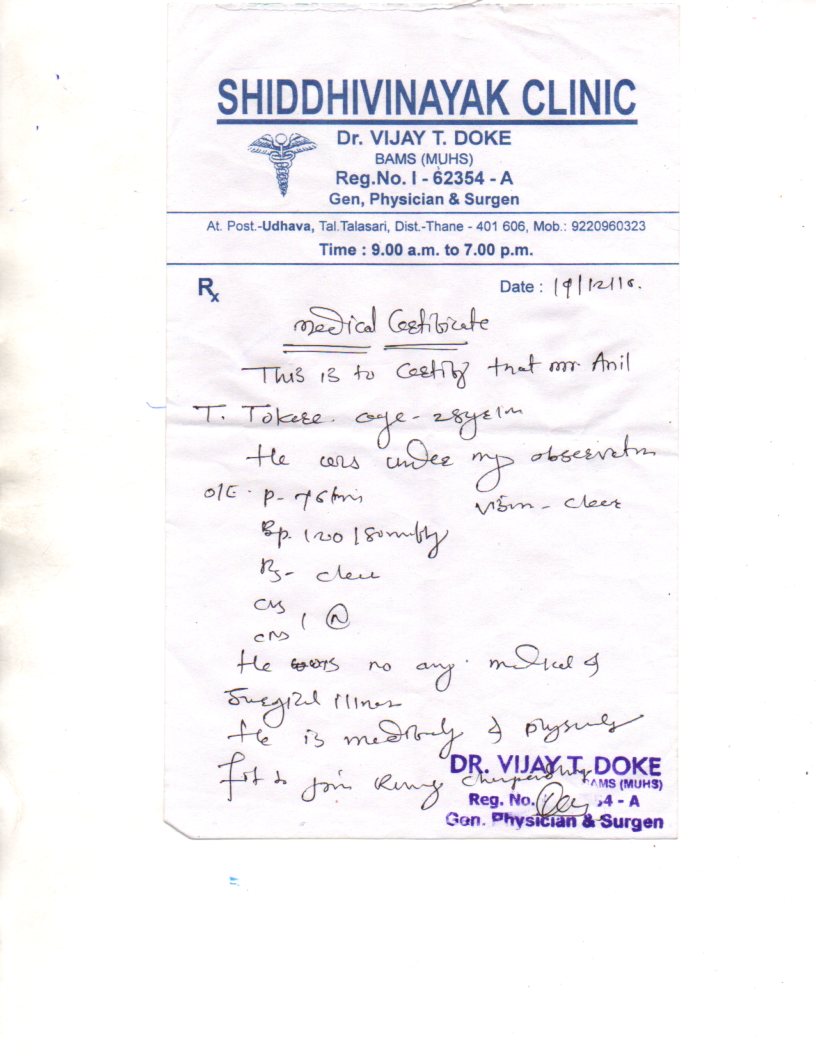 SHIDDHIVINAYAK CLINIC
Dr. VIJAY T. DOKE
BAMS (MUHS)
Reg.No. I - 62354 - A
Gen, Physician & Surgen
At. Post.-Udhava, Tal.Talasari, Dist.-Thane - 401 606, Mob.: 9220960323
Time : 9.00 a.m. to 7.00 p.m.
Rx Date : 19/12/16.
Medical Certificate
This is to certify that mr. Anil
T. Tokere. age - 28
He was under my observation
O/E - P - 76/min clear
Bp. 120/80mmHg
Rs - clear
CVS
CNS / N
He no any medical &
surgical illness
He is medically & physically
fit to join
DR. VIJAY T. DOKE
BAMS (MUHS)
Reg. No. 54 - A
Gen. Physician & Surgen